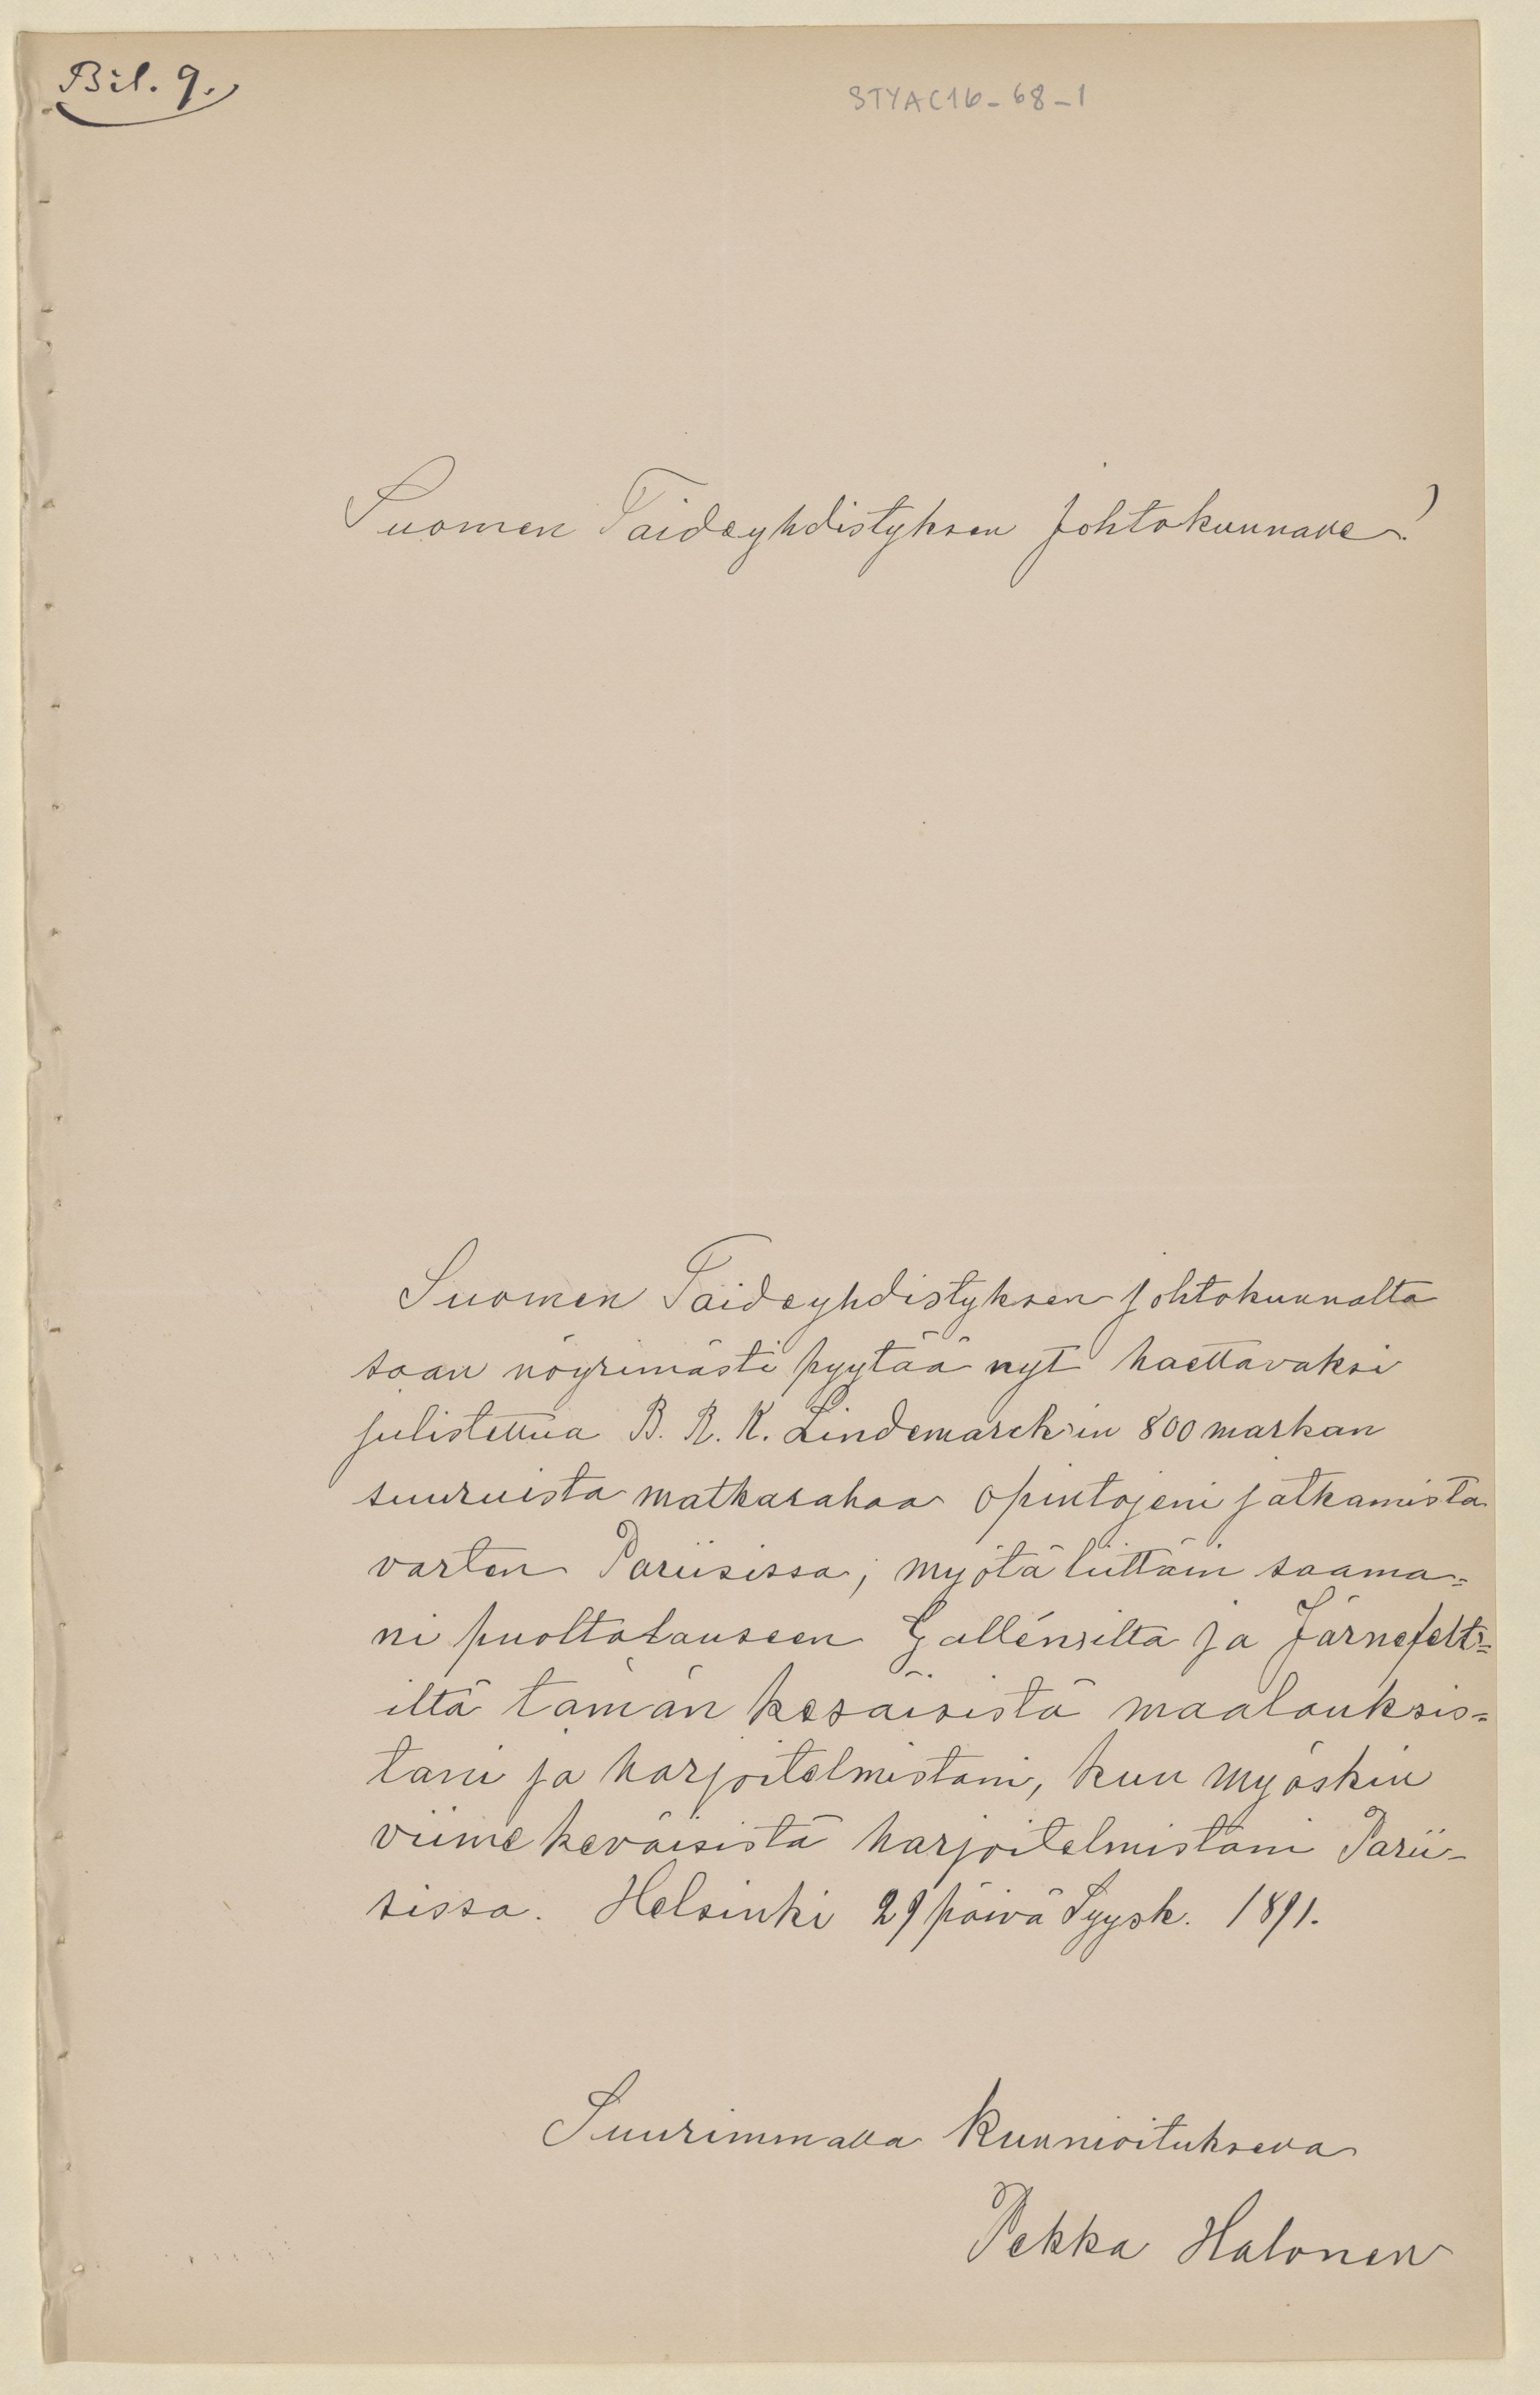 Bil. 9.
STYAC16-68-1
Suomen Taideyhdistyksen Johtokunnalle!
Suomen Taideyhdistyksen johtokunnalta
saan nöyrimästi pyytää nyt haettavaksi
julistettua B. R. K. Lindemarck'in 800 markan
suuruista matkarahaa opintojeni jatkamista
varten Pariisissa; myötäliittäin saama=
ni puoltolauseen Gallénsilta ja Järnefelt=
iltä tämän kesäisistä maalauksis=
tani ja harjoitelmistani, kun myöskin
viimekeväisistä harjoitelmistani Parii-
sissa. Helsinki 29 päivä Syysk. 1891.
Suurimmalla Kunnioituksella
Pekka Halonen